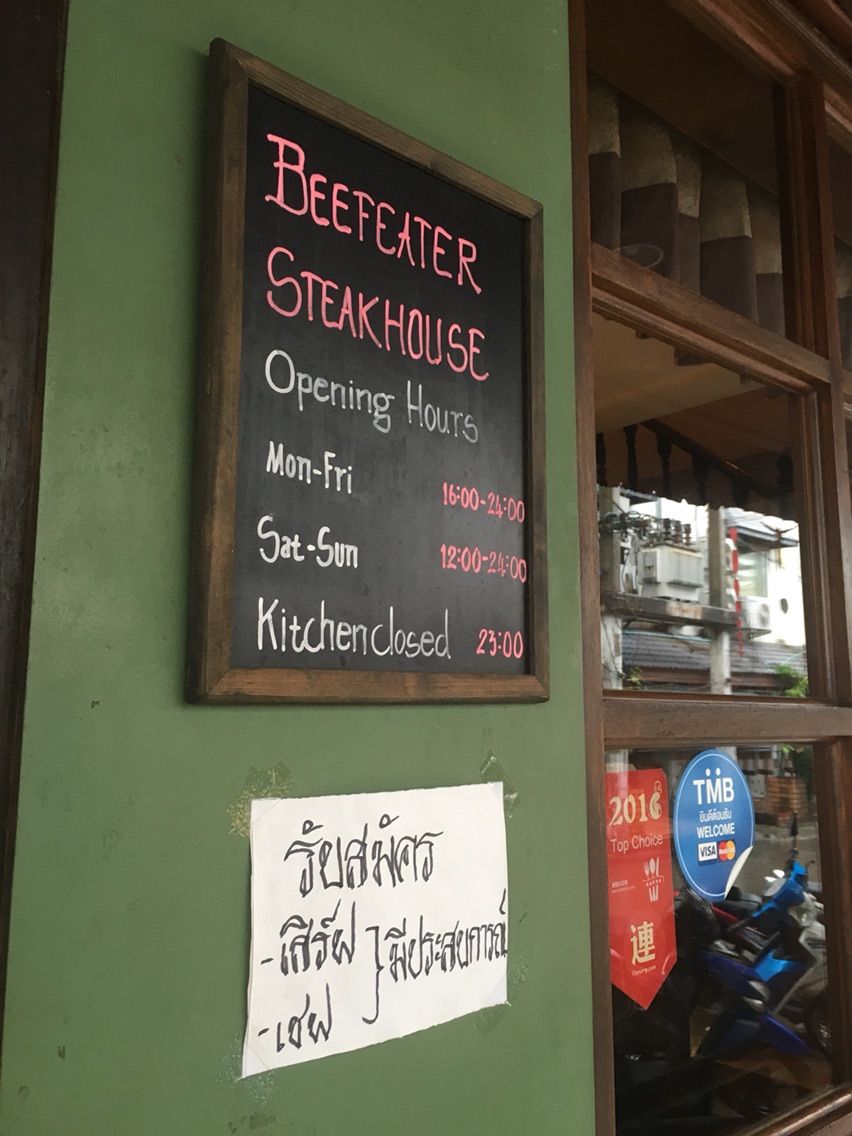 BEEFEATER
STEAKHOUSE
Opening Hours
Mon-Fri 16:00-24:00
Sat-Sun 12:00-24:00
Kitchen closed 23:00
รับสมัคร
-เสิร์ฟ } มีประสบการณ์
-เชฟ
2016
Top Choice
連
TMB
ยินดีต้อนรับ
WELCOME
VISA MasterCard